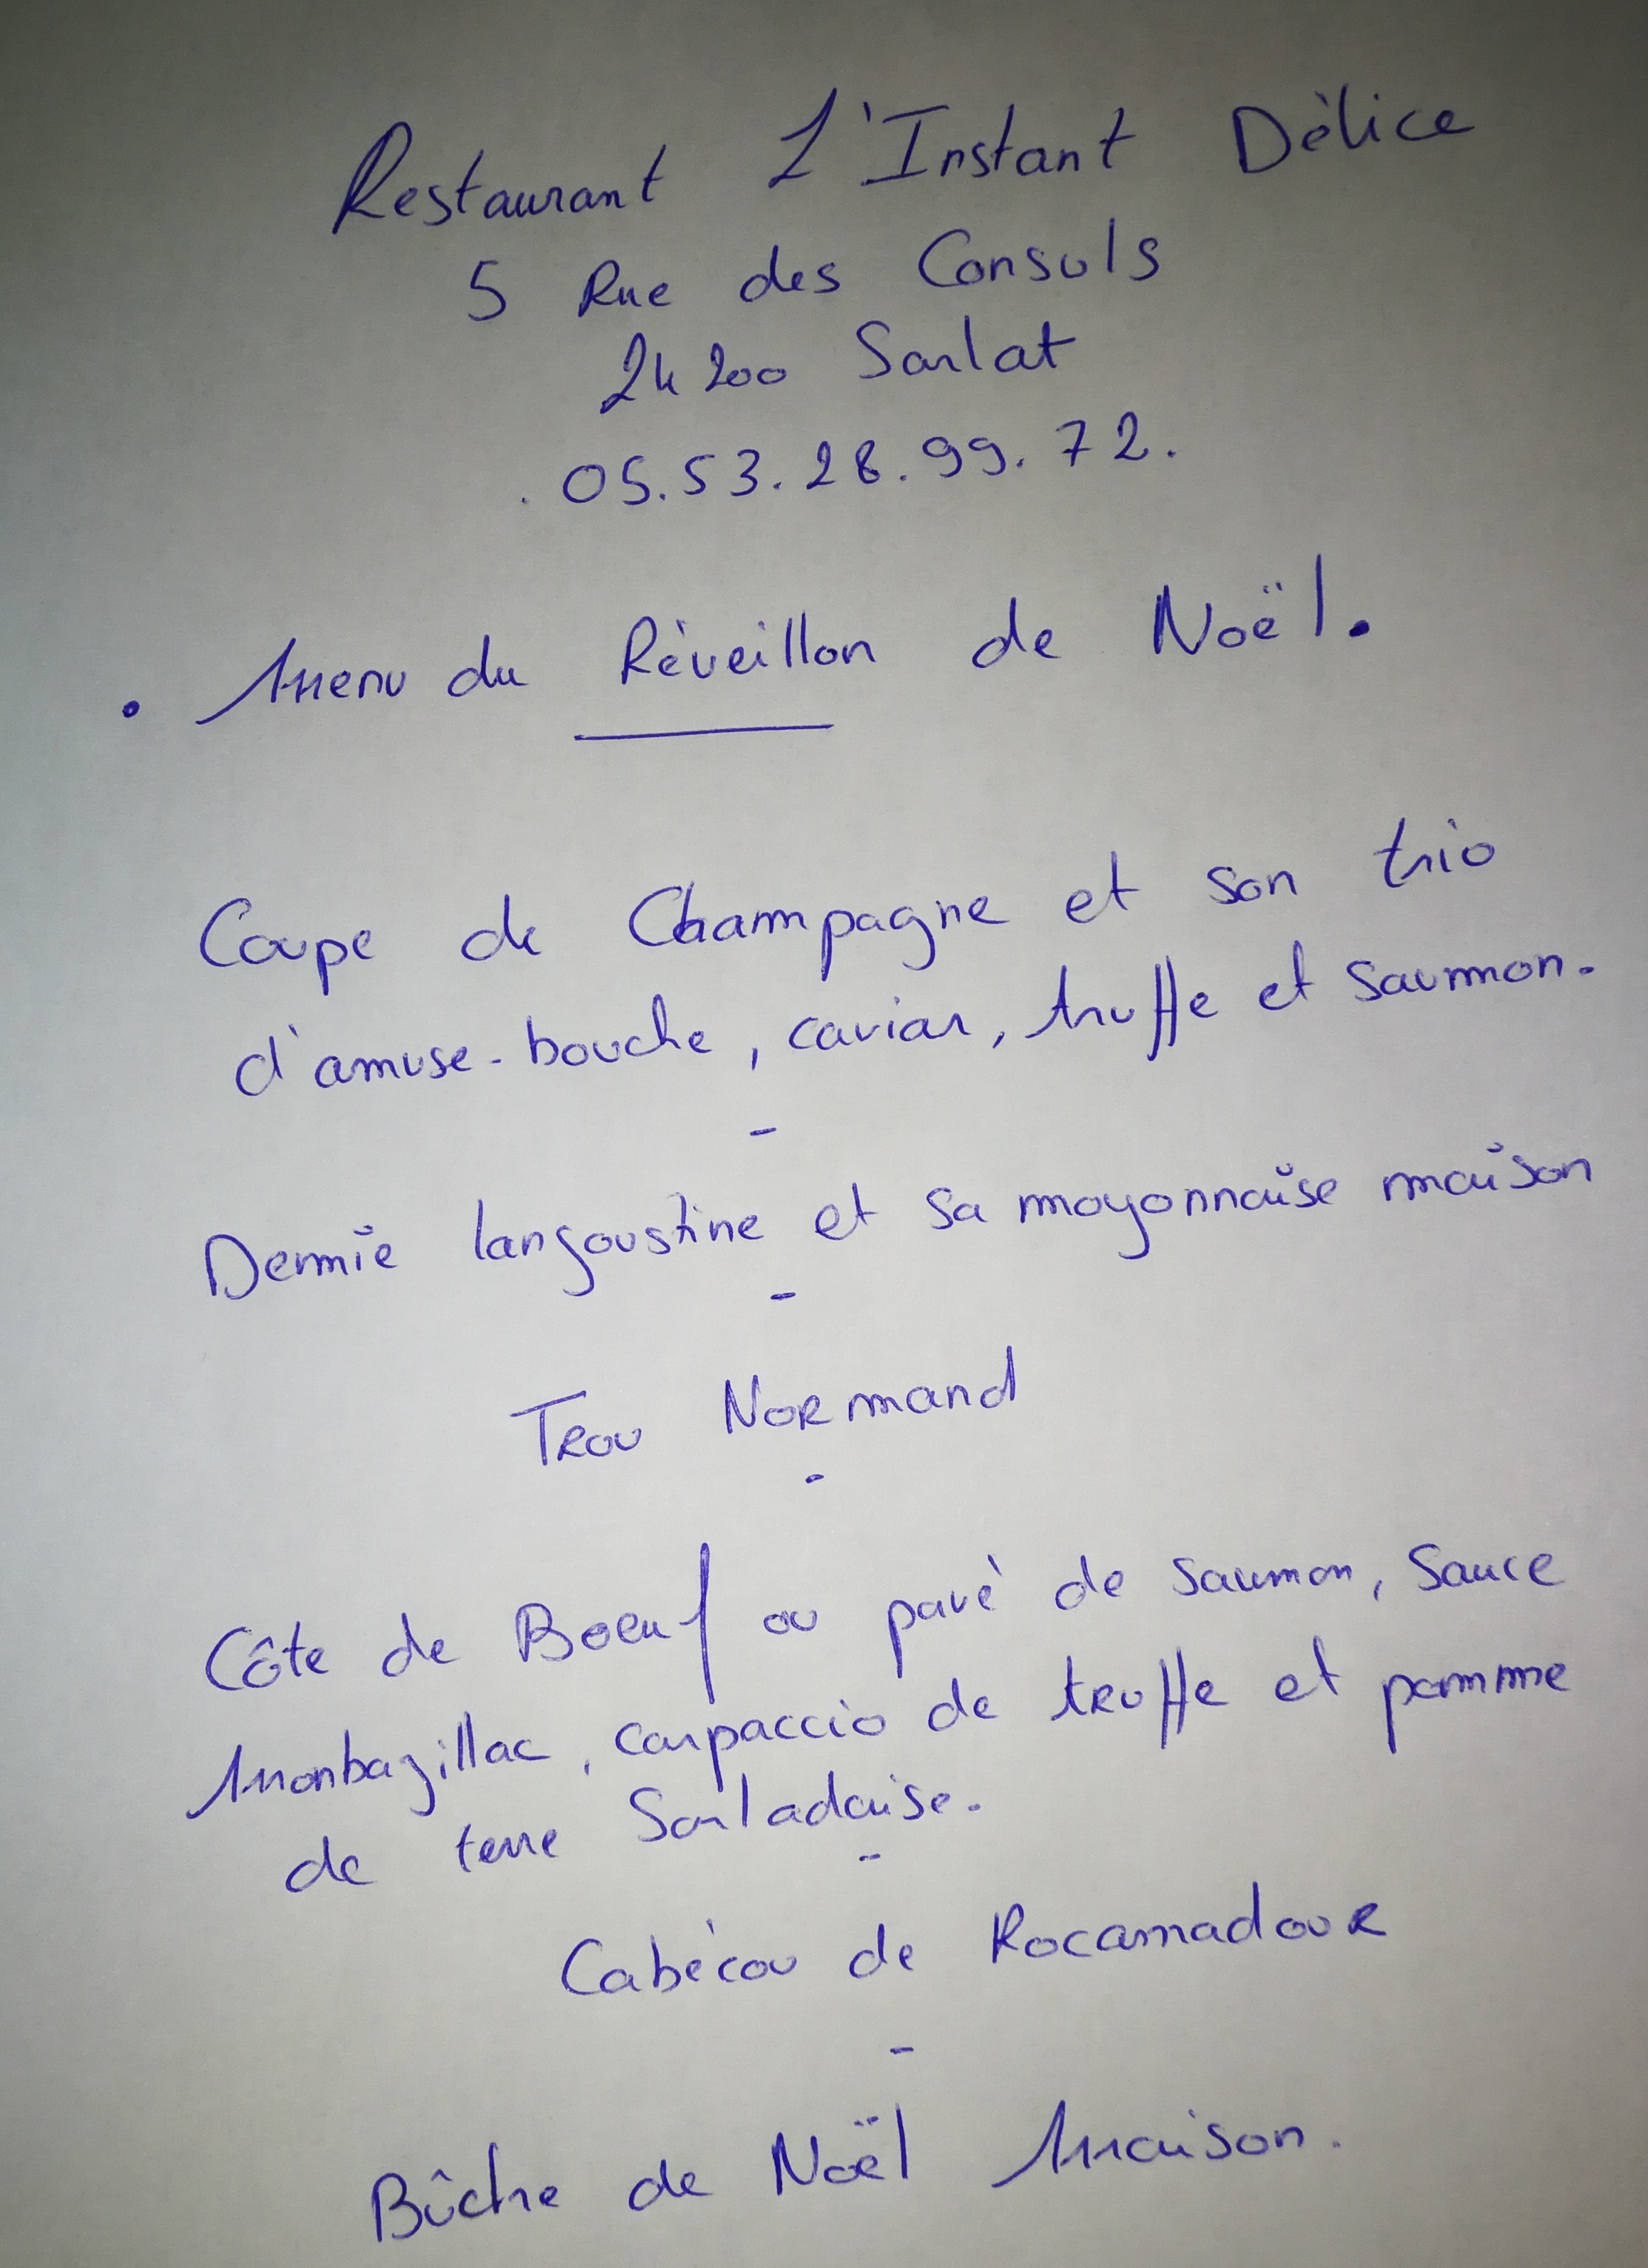 Restaurant L'Instant Délice
5 Rue des Consuls
24200 Sarlat
. 05.53.28.99.72.
• Menu du Réveillon de Noël.
Coupe de Champagne et son trio
d'amuse-bouche, caviar, truffe et saumon.
-
Demie langoustine et sa mayonnaise maison
-
Trou Normand
-
Côte de Boeuf ou pavé de saumon, Sauce
Monbazillac, carpaccio de truffe et pomme
de terre Sarladaise.
-
Cabécou de Rocamadour
-
Bûche de Noël Maison.